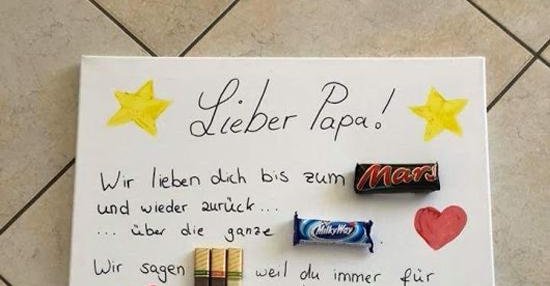 Lieber Papa!
Wir lieben dich bis zum Mars
und wieder zurück...
... über die ganze MilkyWay.
Wir sagen weil du immer für